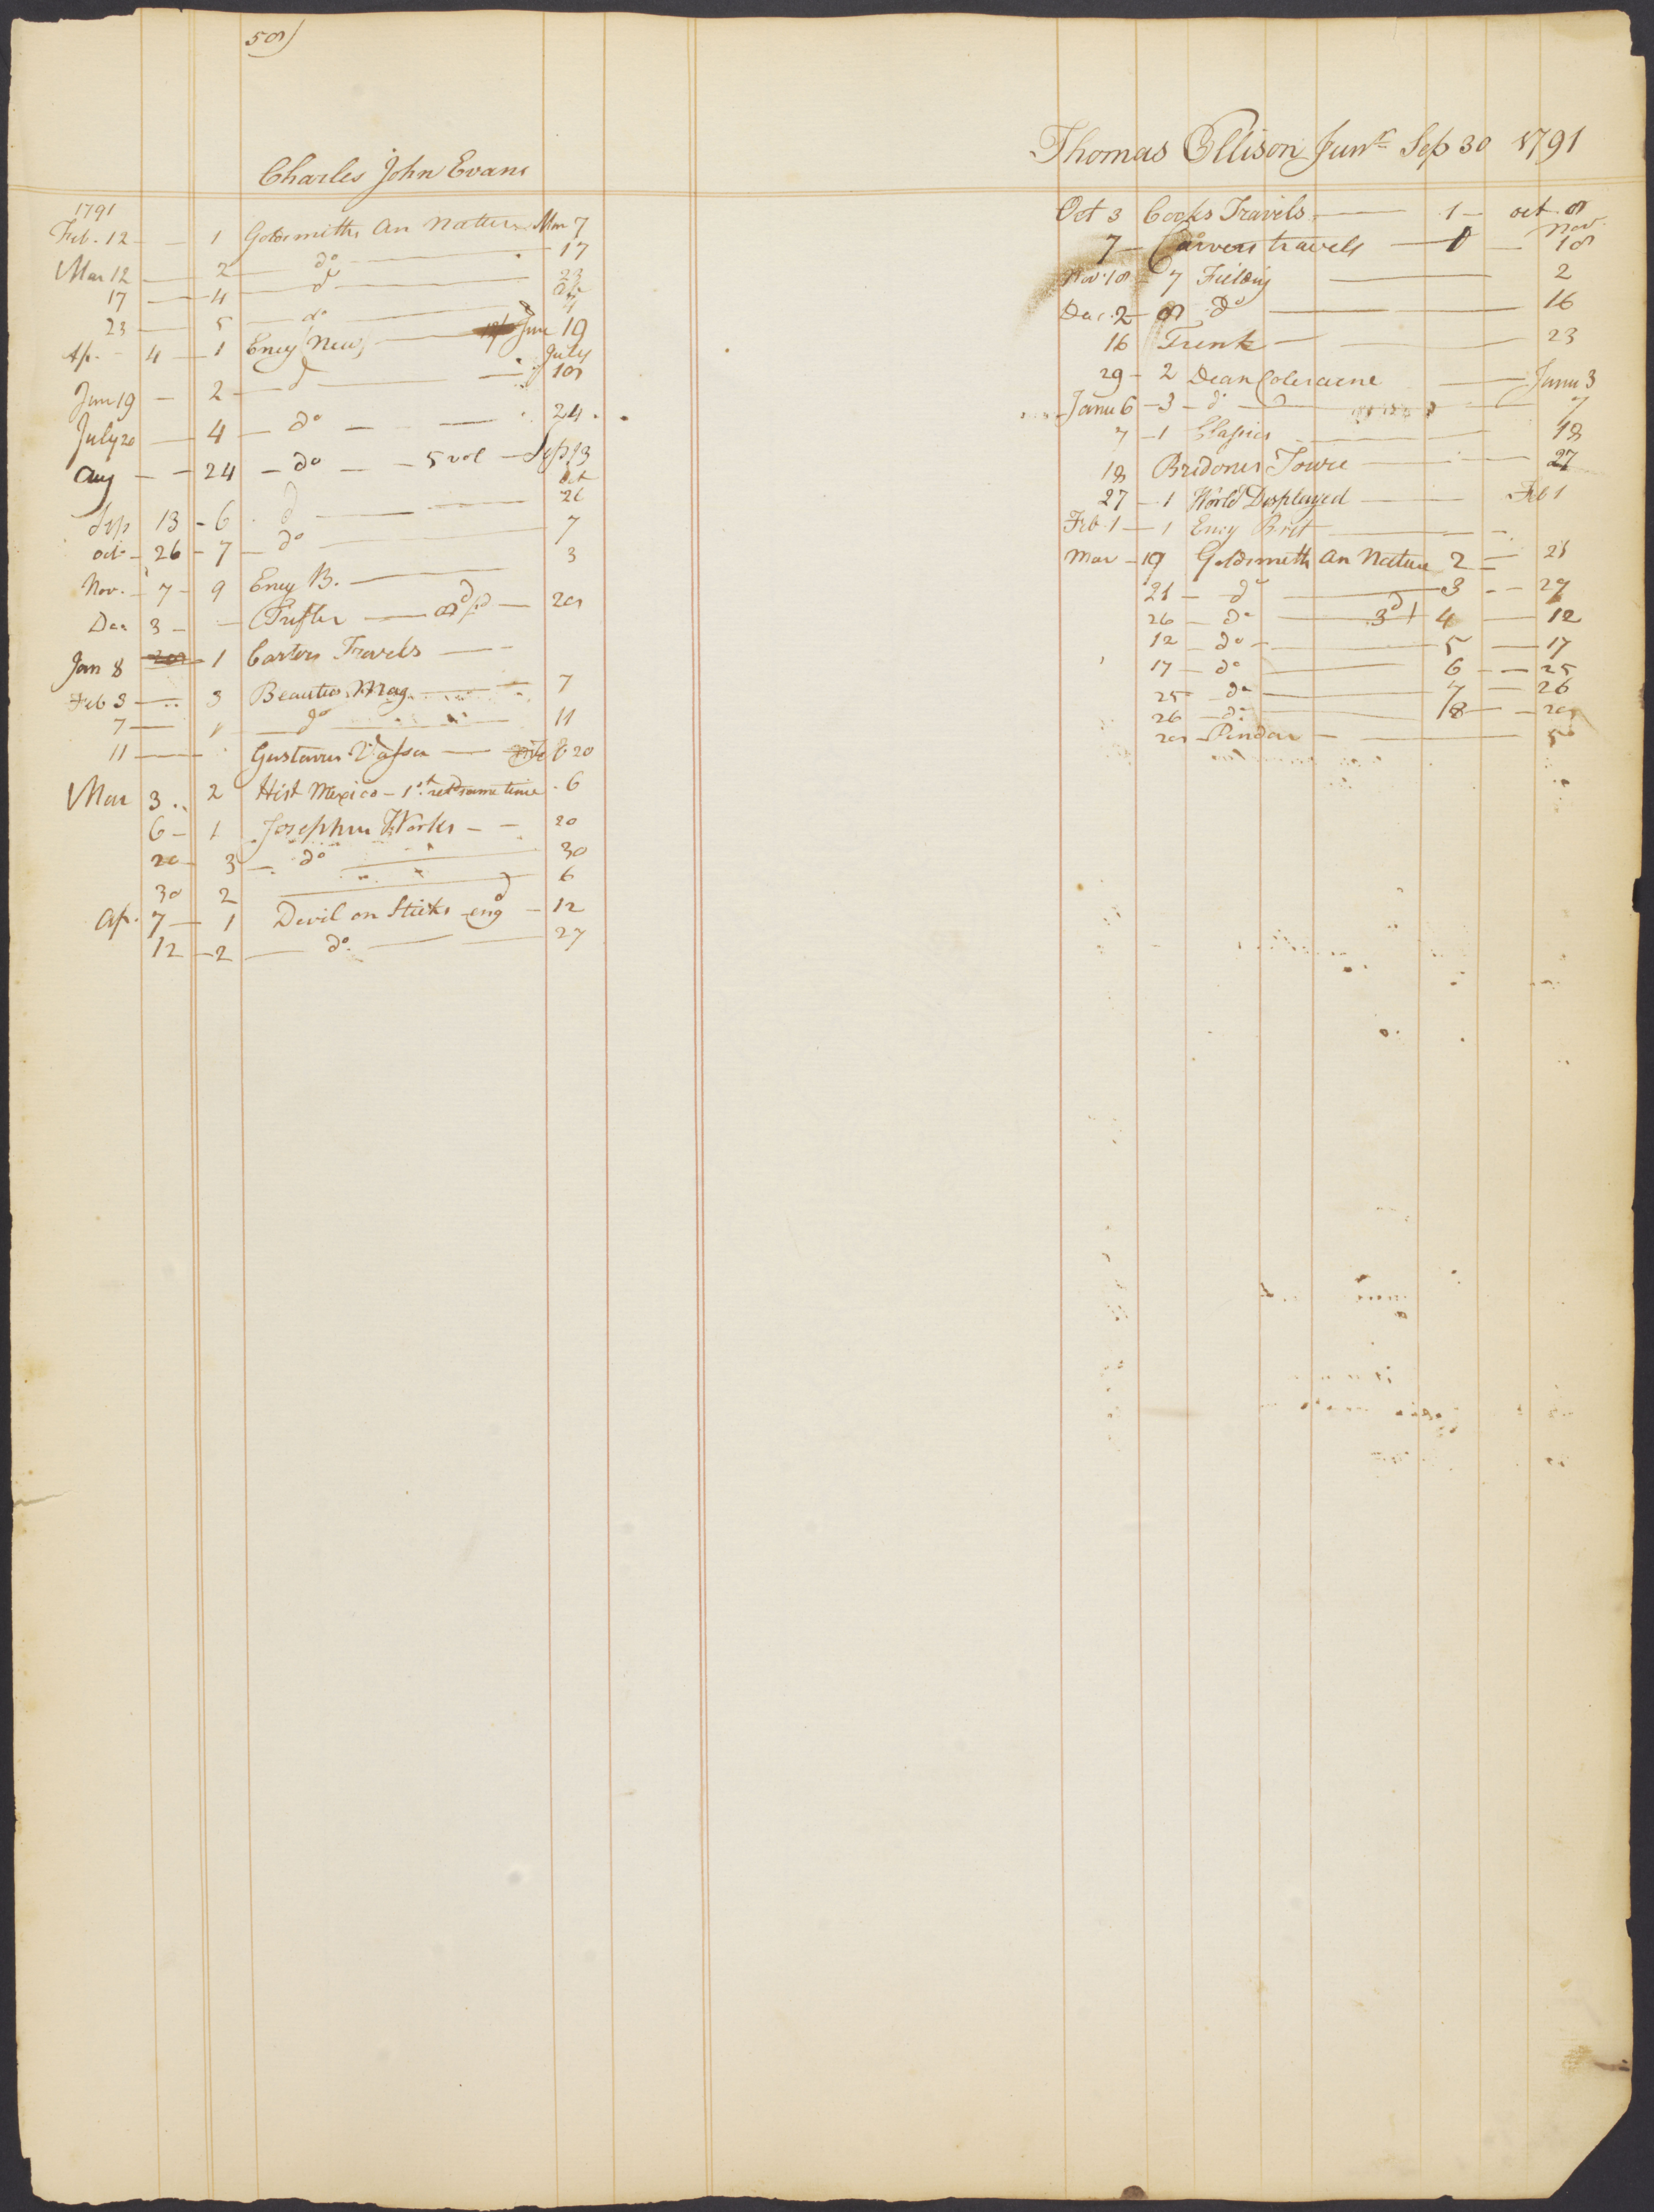 58)
Charles John Evans
1791
Feb. 12 — — 1 Goldsmiths An Nature Mar 7
Mar 12 — 2 — do — 17
17 — 4 — do — 23
23 — 5 — do —
Ap. — 4 — 1 Ency New — June 19
Jun 19 — 2 — d — July 18
July 20 — 4 — do — — 24
Aug — — 24 — do — — 5 vol — Sep 13
Sep 13 - 6 d — Oct 26
oct — 26 - 7 — do — 7
Nov. — 7 - 9 Ency B. — 3
Dec 3 — — 28
Jan 8 — 1 Carters Travels —
Feb 3 — 3 Beauties Mag. — 7
7 — do — 11
11 — Gustavus Vassa — 20
Mar 3 .. 2 Hist Mexico — 1st retd same time . 6
6 — 1 Josephus Works — — 20
20 3 — do — 30
30 2 — 6
Ap. 7 — 1 Devil on Sticks eng — 12
12 — 2 — do — 27
Thomas Ellison Junr Sep 30 1791
Oct 3 Cooks Travels — 1 — oct. 8
7 — Carvers travels — 1 — Nov. 18
Nov. 18 — 7 Fielding — 2
Dec. 2 — 8 do — 16
16 Trenk — 23
29 — 2 Dean Coleraine — Janu 3
Janu 6 — 3 — do — 7
7 — 1 Classics — 18
18 Bridones Toure — 27
27 — 1 World Displayed — Feb 1
Feb 1 — 1 Ency Brit —
Mar — 19 Goldsmith An Nature 2 — 21
21 — do — 3 — 29
26 — do — 3d + 4 — 12
12 — do — 5 — 17
17 — do — 6 — 25
25 do — 7 — 26
26 — do — 8 — 28
28 — Pindar — 5